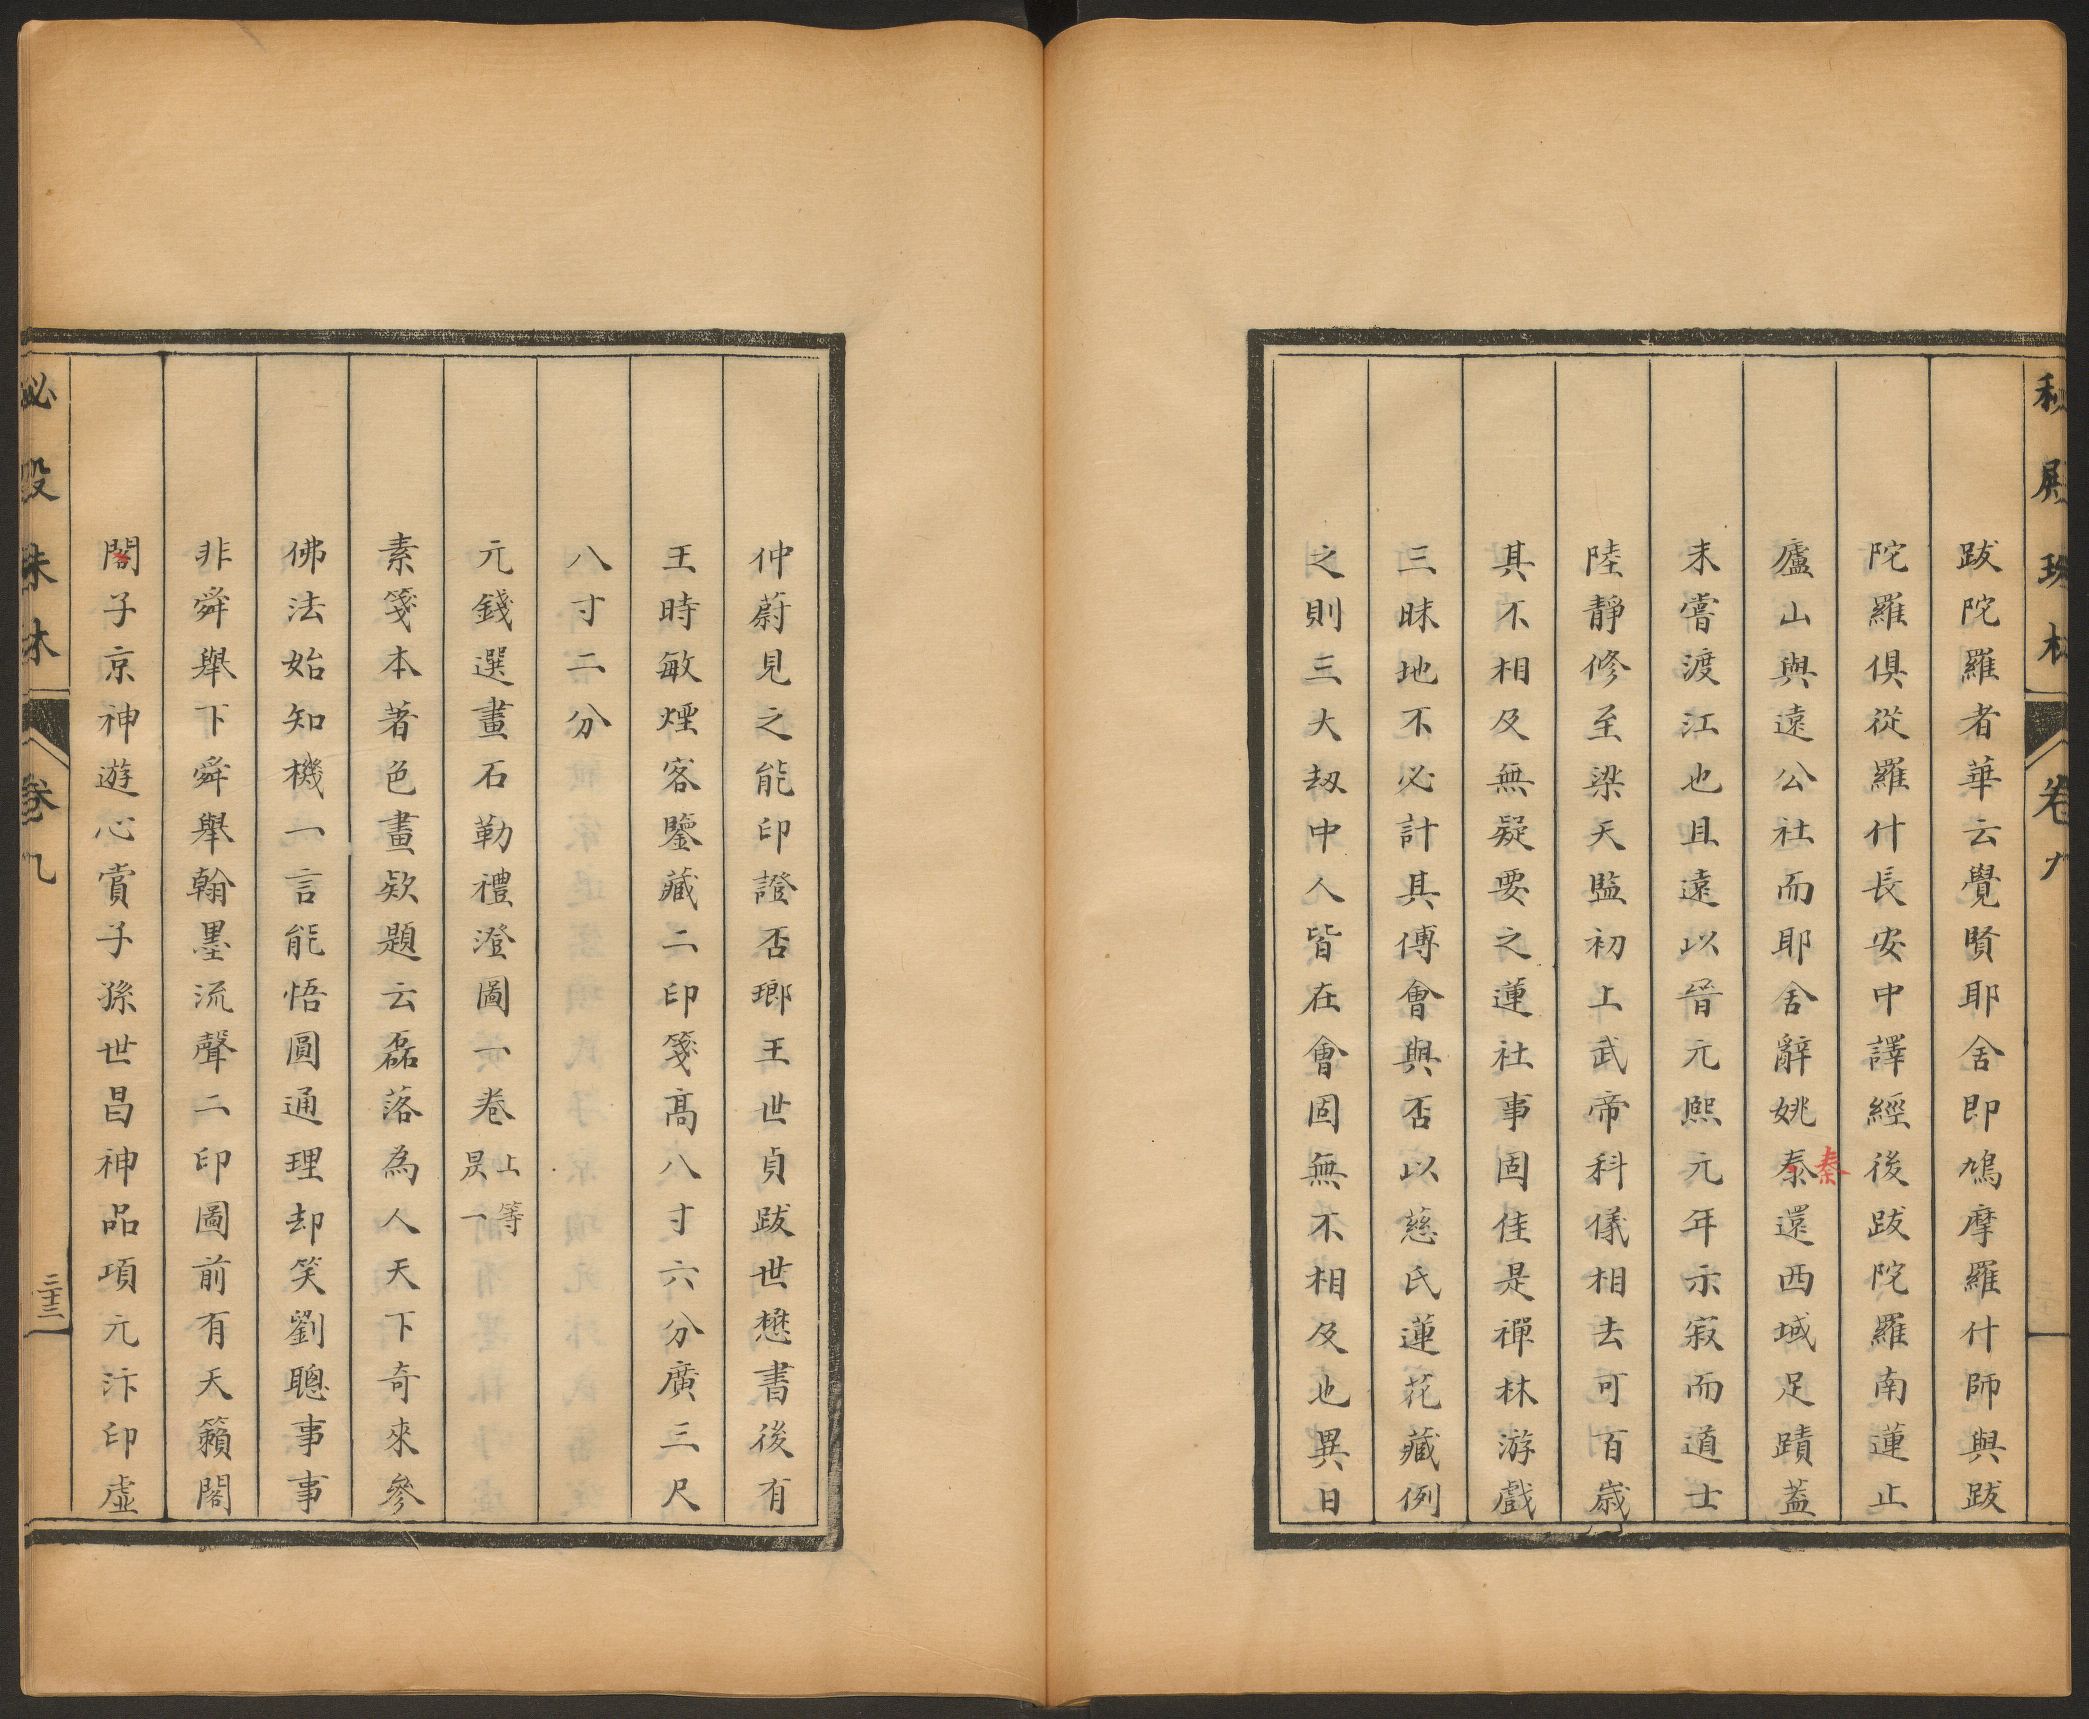 秘殿珠林 卷九
跋陀羅者華云覺賢耶舍即鳩摩羅什師與跋
陀羅俱從羅什長安中譯經後跋陀羅南蓮止
廬山與遠公社而耶舍辭姚泰還西域足蹟蓋
秦
未嘗渡江也且遠以晉元熈元年示寂而道士
陸靜修至梁天監初上武帝科儀相去可百歲
其不相及無疑要之蓮社事固佳是禪林游戲
三昧地不必計其傅會與否以慈氏蓮花藏例
之則三大刼中人皆在會固無不相及也異日
仲蔚見之能印證否瑯王世貞跋世懋書後有
王時敏煙客鑒藏二印箋高八寸六分廣三尺
八寸二分
元錢選畫石勒禮澄圖一卷 上等
昃一
素箋本著色畫欵題云磊落為人天下奇來參
佛法始知機一言能悟圓通理却笑劉聰事事
非舜舉下舜舉翰墨流聲二印圖前有天籟閣
閣子京神遊心賞子孫世昌神品項元汴印虛
秘殿朱林 卷九 三十三